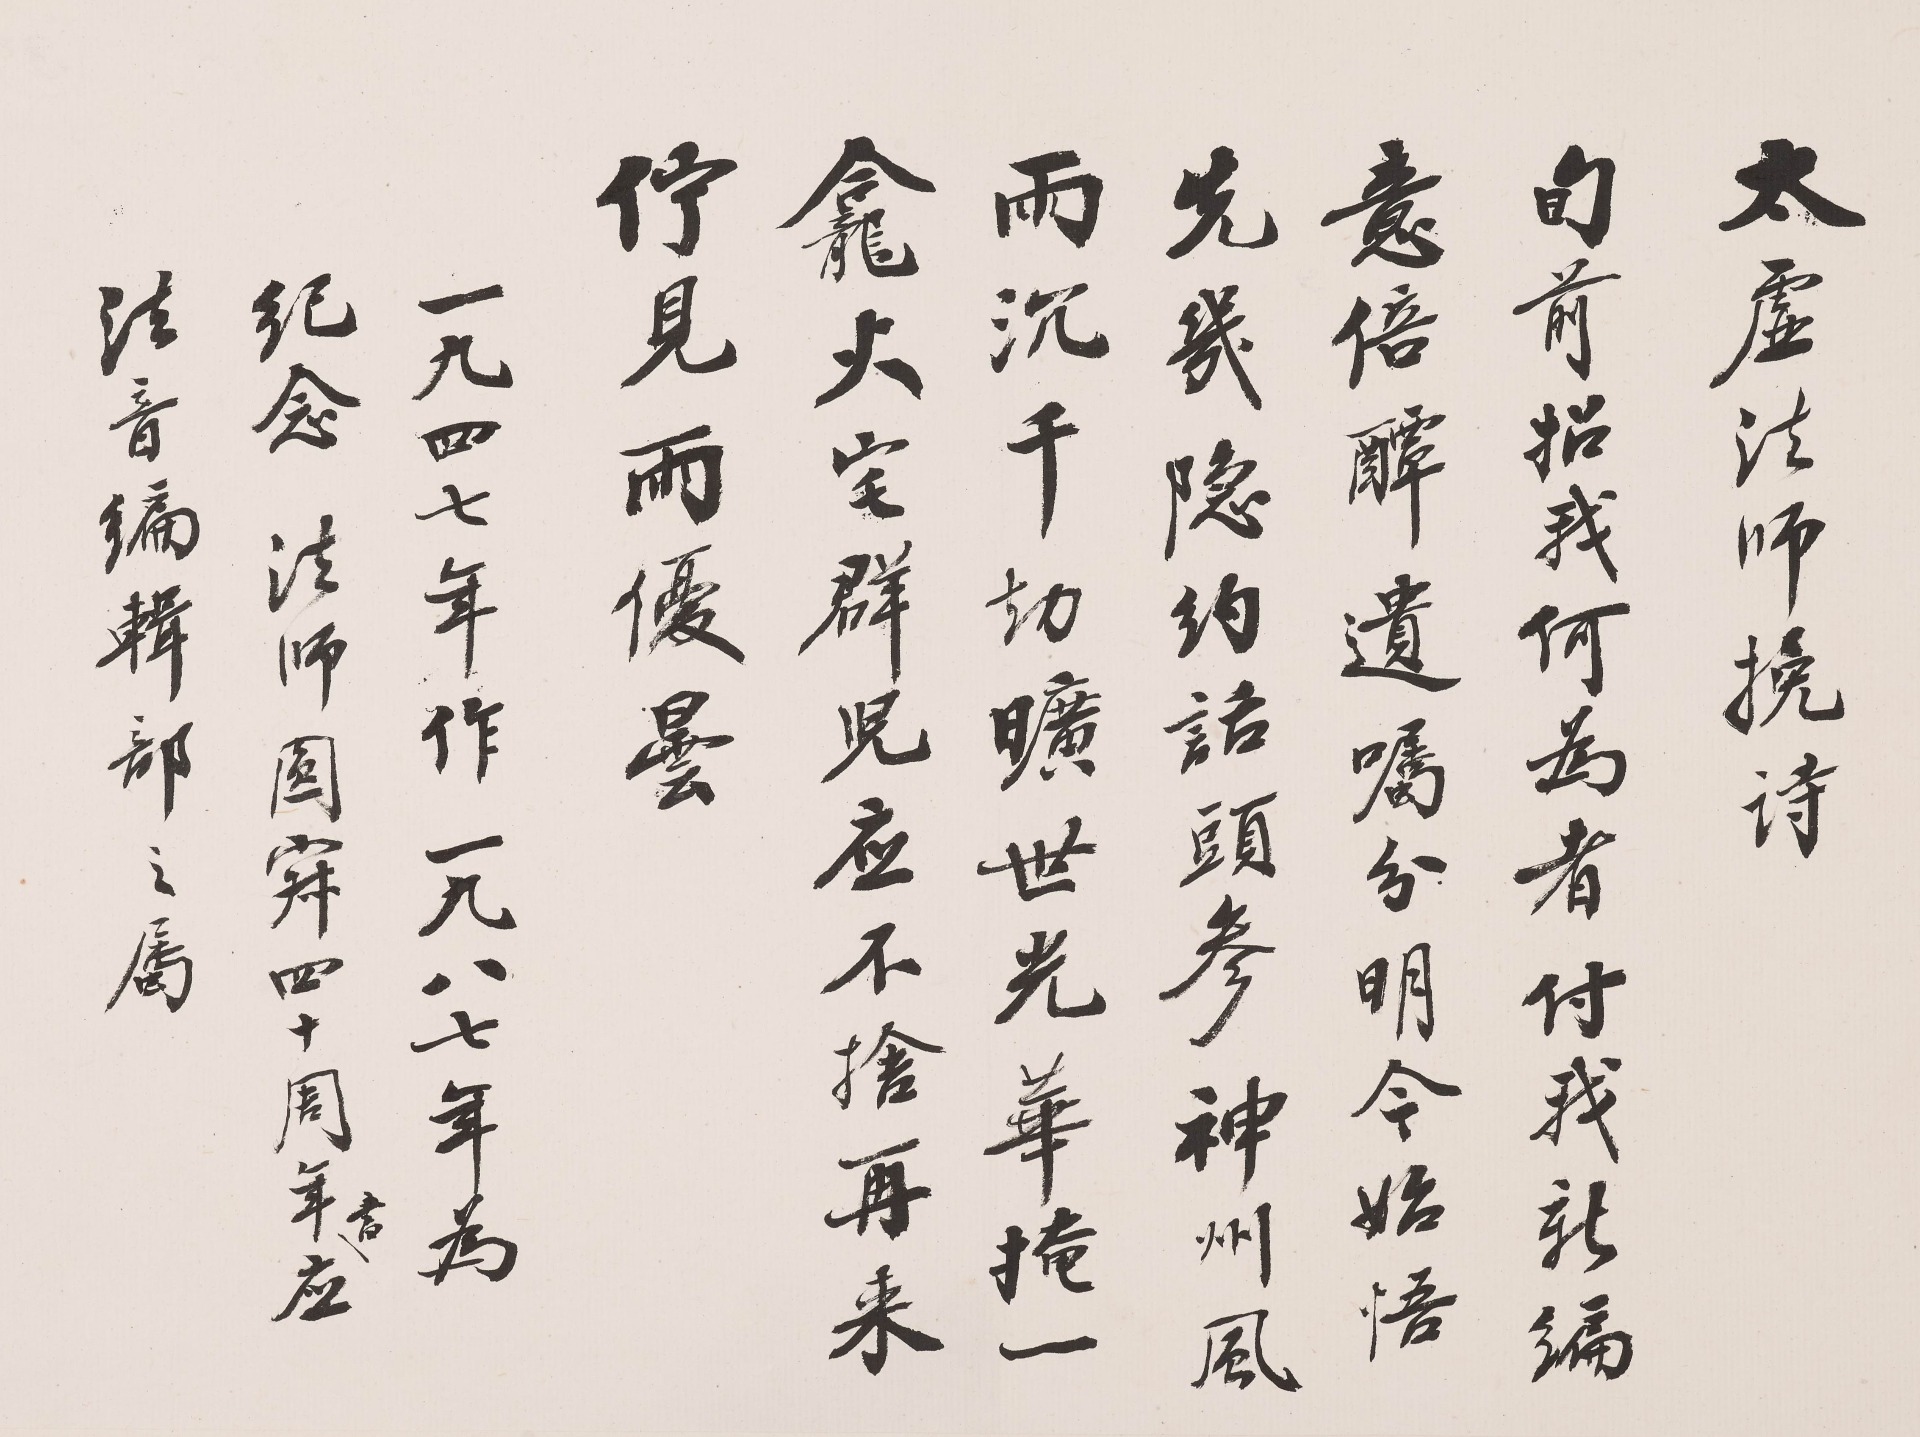 太虚法师挽诗
旬前招我何为者付我新编
意倍醰遗嘱分明今始悟
先几隐约话頭参神州风
雨沉千劫曠世光華掩一
龕火宅群児应不捨再来
佇見雨優曇
一九四七年作一九八七年为
纪念 法师圆寂四十周年应
書
法音编輯部之属